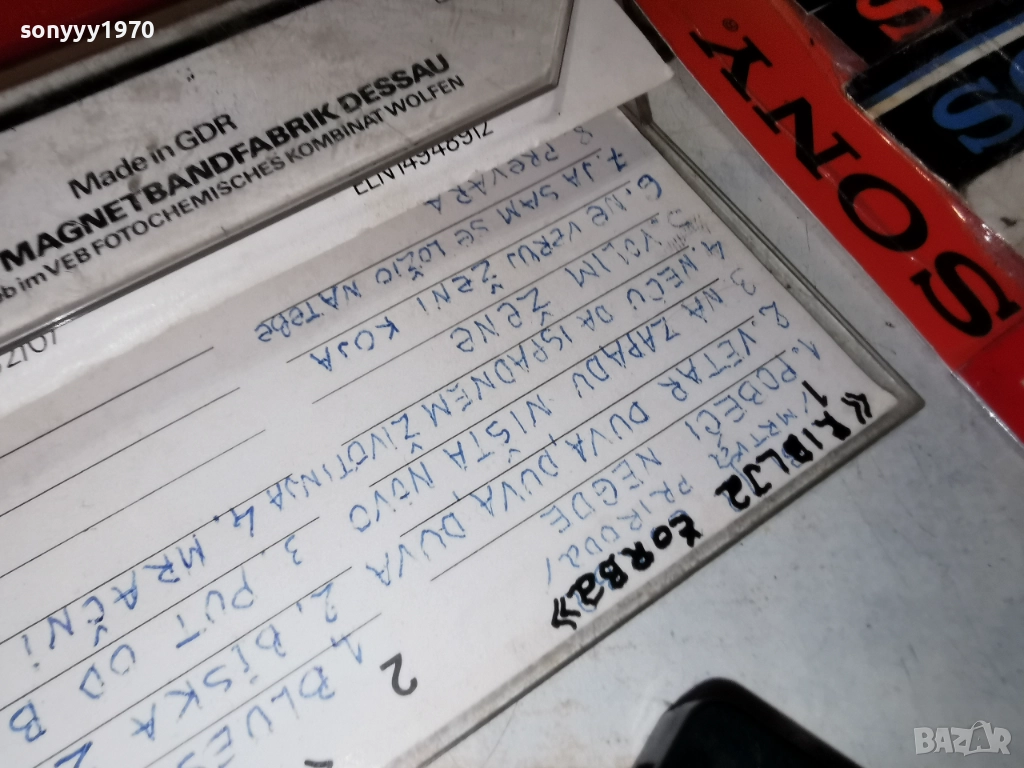 sonyyy1970
Made in GDR
MAGNETBANDFABRIK DESSAU
im VEB FOTOCHEMISCHES KOMBINAT WOLFEN
SONY
«RIBLJ2 ČORBa»
1
1. POBEĆI NEGDE
2. VETAR DUVA, DUVA, DUVA
3. NA ZAPADU NIŠTA NOVO
4. NEĆU DA ISPADNEM ŽIVOTINJA
5. VOLIM ŽENE
6. NE VERUJ ŽENI KOJA
7. JA SAM SE LOŽIO NA TEBE
8. PREVARA
2
1. BLUES
2. BISKA
3. PUT OD B
4. MRAČNI
BAZAR